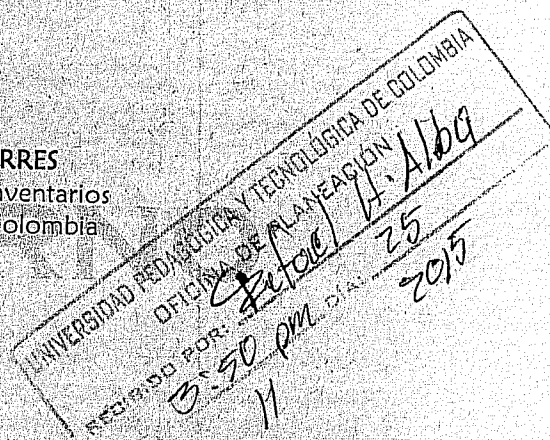 RRES
nventarios
olombia
UNIVERSIDAD PEDAGÓGICA Y TECNOLÓGICA DE COLOMBIA
OFICINA DE PLANEACIÓN
H. Alba
RECIBIDO POR:
3:50 pm DÍA: 25
2015